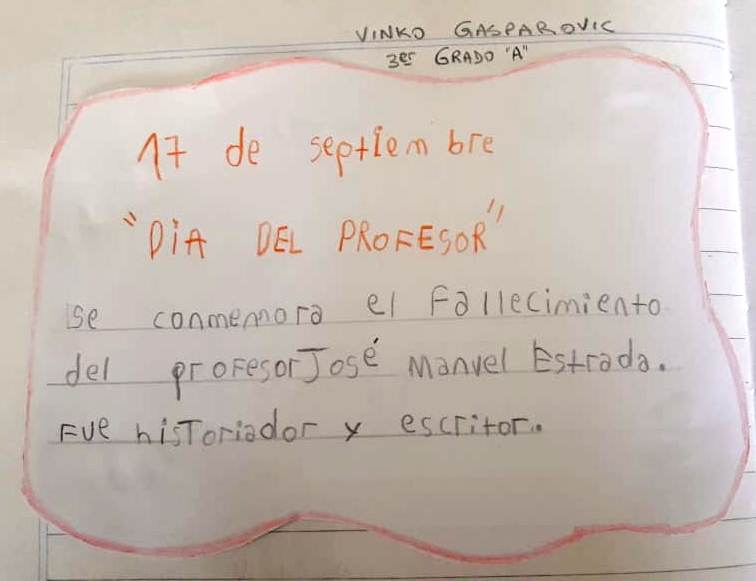 VINKO GASPAROVIC
3er GRADO "A"
17 de septiembre
"DiA DEL PROFESOR"
se conmemora el Fallecimiento
del profesor José Manuel Estrada.
Fue hisToriador y escritor.